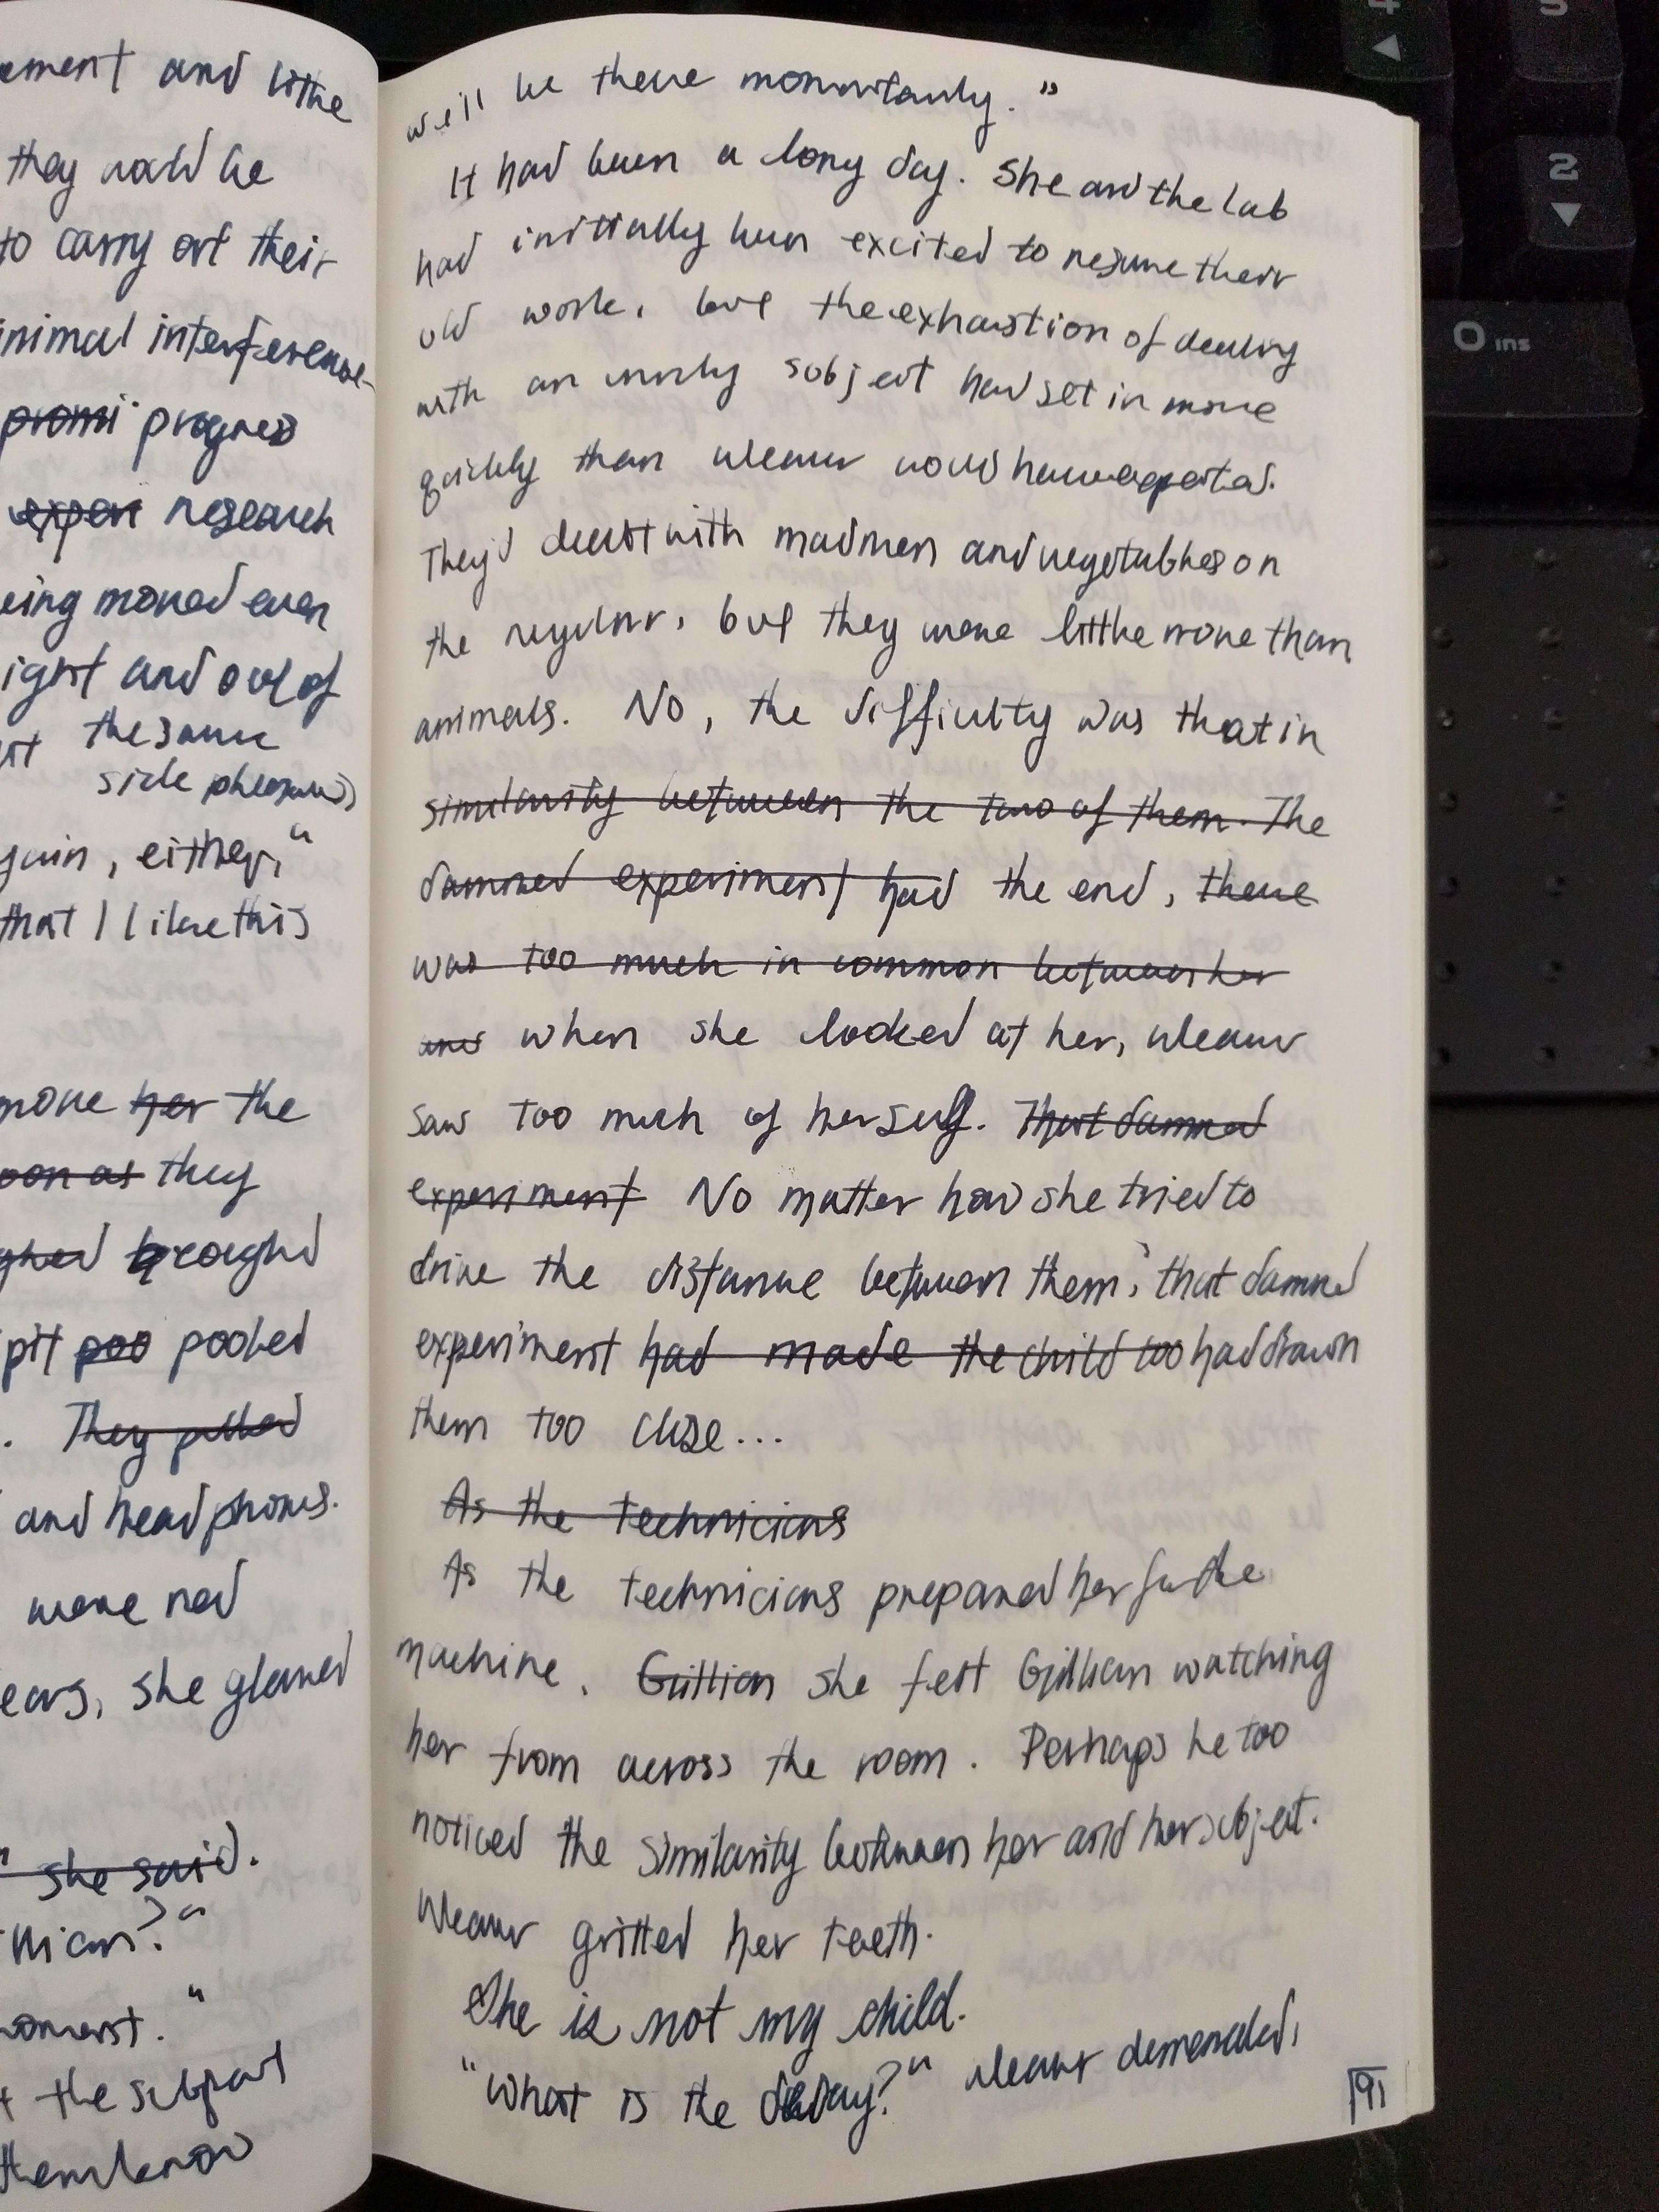 ement and little
they would be
to carry out their
inimal interference
promi progress
experi research
eing moved even
ight and out of
the same
side phleasures
gain, either,"
that I like this
move her the
oon as they
ghed brought
pit poo pooled
. They pulled
and headphones.
were red
ears, she glared
" she said.
llian?"
moment."
the subject
them know
will be there momentarily."
It had been a long day. She and the lab
had initially been excited to resume their
old work, but the exhaustion of dealing
with an unruly subject had set in more
quickly than Weaver would have expected.
They'd dealt with madmen and vegetables on
the regular, but they were little more than
animals. No, the difficulty was that in
similarity between the two of them. The
damned experiment had the end, there
was too much in common between her
and when she looked at her, Weaver
saw too much of herself. That damned
experiment No matter how she tried to
drive the distance between them, that damned
experiment had made the child too had drawn
them too close...
As the technicians
As the technicians prepared her for the
machine, Gillian she felt Gillian watching
her from across the room. Perhaps he too
noticed the similarity between her and her subject.
Weaver gritted her teeth.
She is not my child.
"What is the delay?" Weaver demanded,
191
4
5
2
0 ins